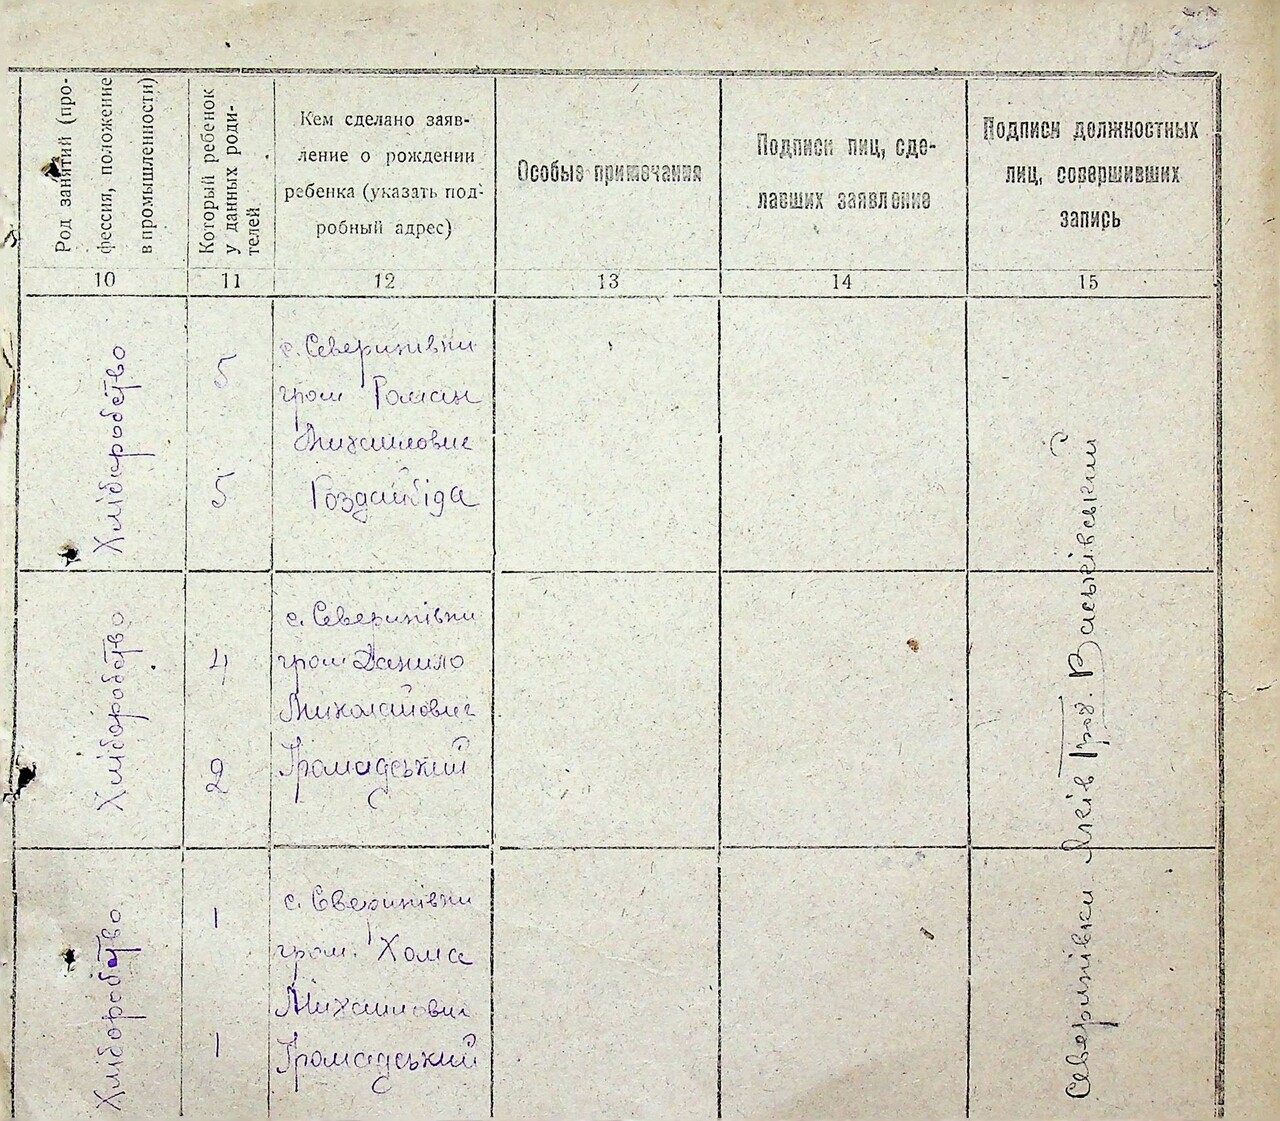 Род занятий (про-
фессия, положение
в промышленности)
Который ребенок
у данных роди-
телей
Кем сделано заяв-
ление о рождении
ребенка (указать под-
робный адрес)
Особые примечания
Подписи лиц, сде-
лавших заявление
Подписи должностных
лиц, совершивших
запись
10 11 12 13 14 15
Хлібороб́ство
5
5
с. Северинівки
гром Роман
Михайлович
Гоздайбіда
Хліборобство
4
2
с. Северинівки
гром Данило
Миколайович
Громадський
Хліборобство
1
1
с. Северинівки
гром. Хома
Михайлович
Громадський
Северинівки Яків Васьківський